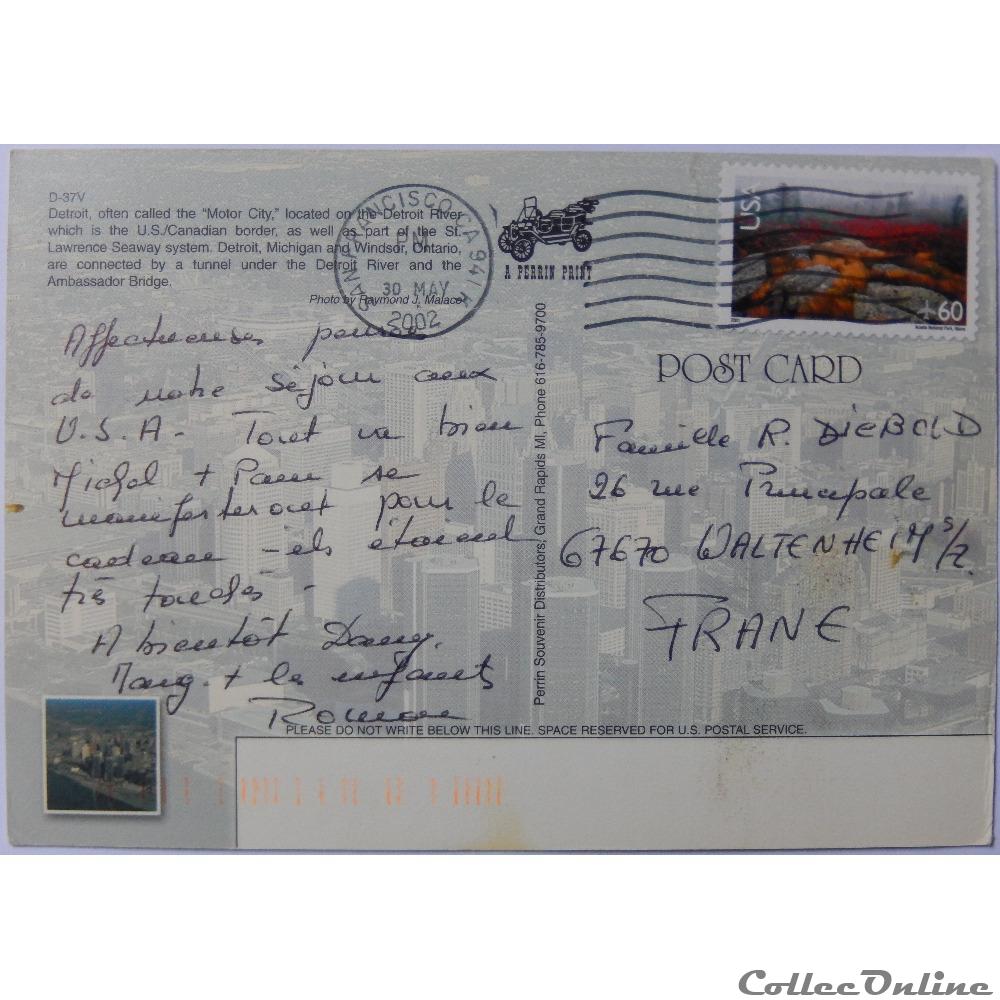 D-37V
Detroit, often called the "Motor City," located on the Detroit River
which is the U.S./Canadian border, as well as part of the St.
Lawrence Seaway system. Detroit, Michigan and Windsor, Ontario,
are connected by a tunnel under the Detroit River and the
Ambassador Bridge.
Photo by Raymond J. Malace
SAN FRANCISCO CA 941
PM
30 MAY
2002
A PERRIN PRINT
USA
60
2001
Acadia National Park, Maine
Affectueuses
de notre séjour aux
U.S.A- Tout va bien
Michel + Pam se
pour le
cadeau - ils étaient
très touchés -
A bientôt Dany.
Marg. + les enfants
Perrin Souvenir Distributors, Grand Rapids MI, Phone 616-785-9700
POST CARD
Famille R. DIEBOLD
26 rue Principale
67670 WALTENHEIM s/z.
FRANE
PLEASE DO NOT WRITE BELOW THIS LINE. SPACE RESERVED FOR U.S. POSTAL SERVICE.
CollecOnline